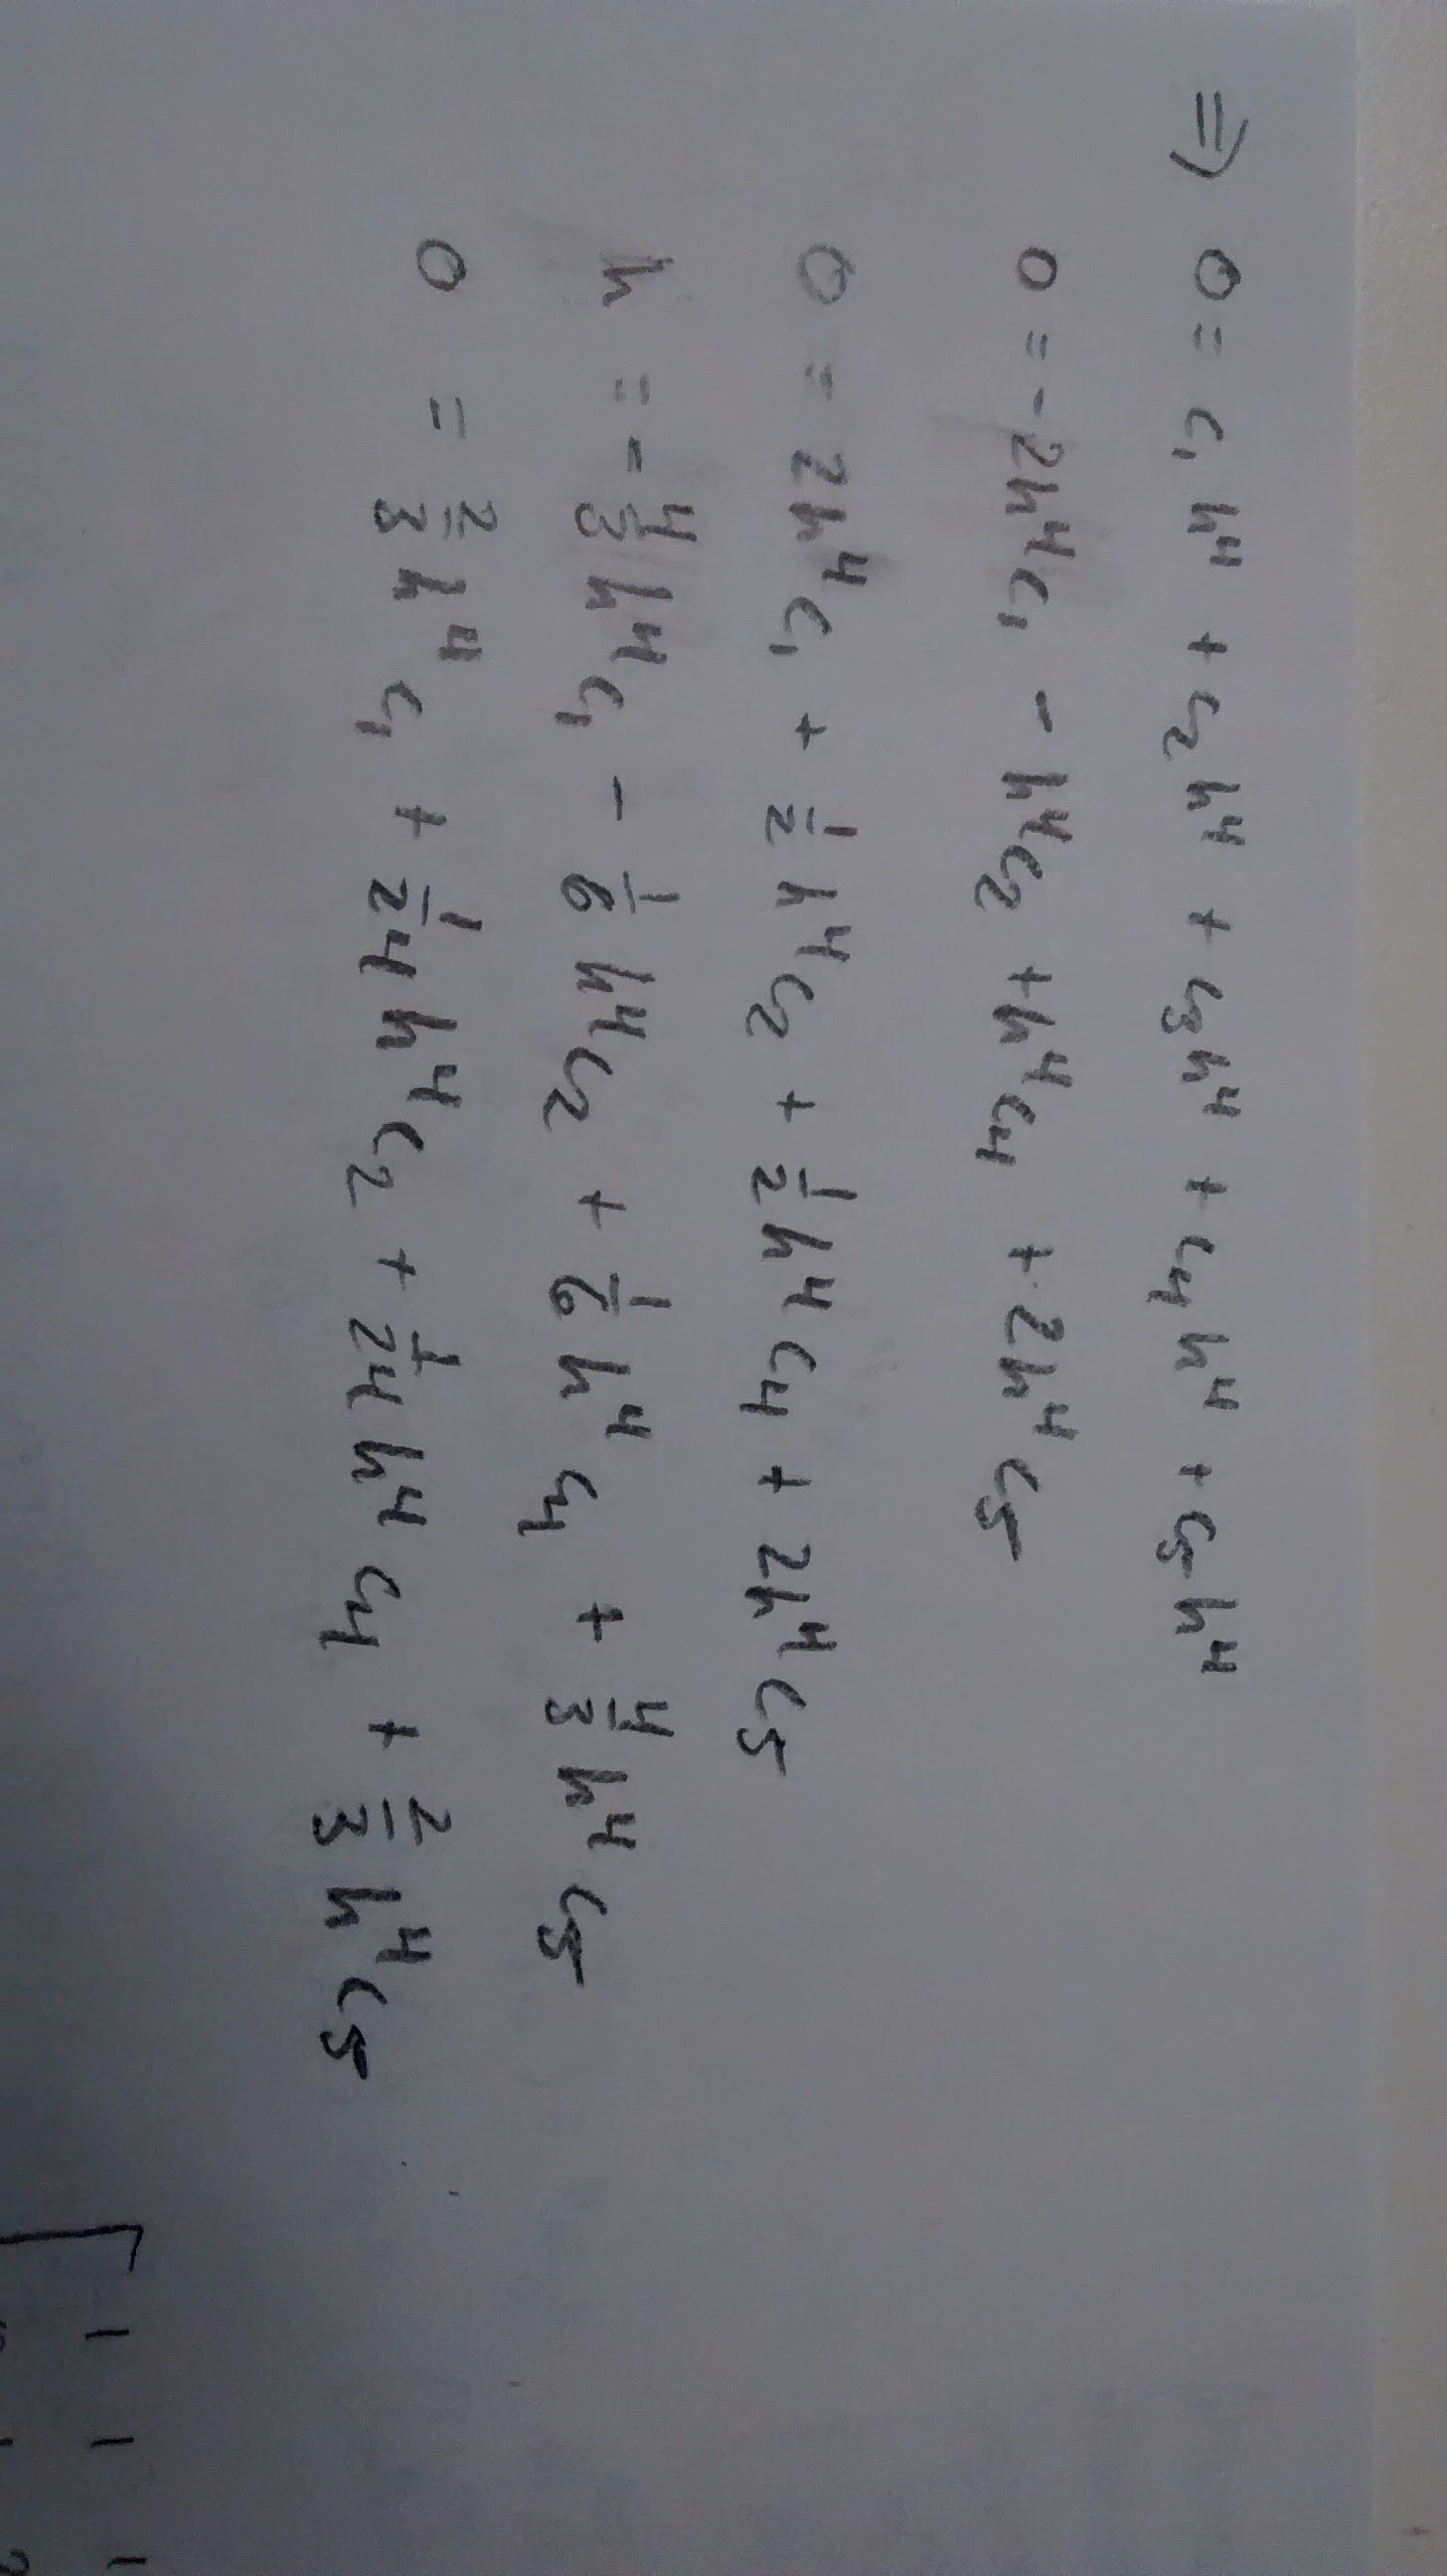 ⇒ 0 = c₁h⁴ + c₂h⁴ + c₃h⁴ + c₄h⁴ + c₅h⁴
0 = -2h⁴c₁ - h⁴c₂ + h⁴c₄ + 2h⁴c₅
0 = 2h⁴c₁ + 1/2 h⁴c₂ + 1/2 h⁴c₄ + 2h⁴c₅
h = -4/3 h⁴c₁ - 1/6 h⁴c₂ + 1/6 h⁴c₄ + 4/3 h⁴c₅
0 = 2/3 h⁴c₁ + 1/24 h⁴c₂ + 1/24 h⁴c₄ + 2/3 h⁴c₅
1 1 1